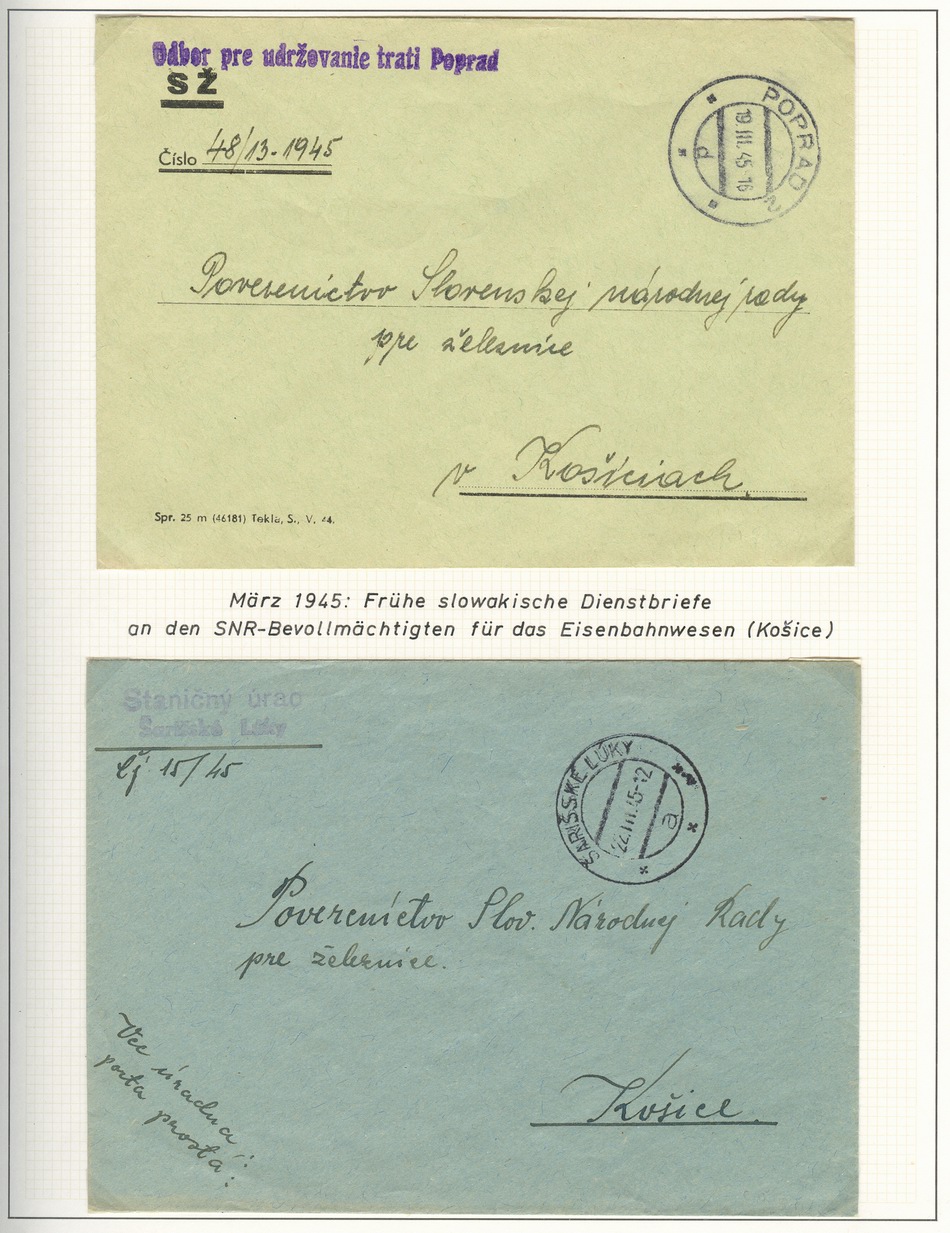 Odbor pre udržovanie trati Poprad
SŽ
Číslo 48/13-1945
POPRAD 2
19.III.45-16
p
Poverenictvo Slovenskej národnej rady
pre železnice
v Košiciach.
Spr. 25 m (46181) Tekla, S., V. 44.
März 1945: Frühe slowakische Dienstbriefe
an den SNR-Bevollmächtigten für das Eisenbahnwesen (Košice)
Staničný úrad
Šarišské Lúky
Čj 15/45
ŠARIŠSKÉ LÚKY
22.III.45-12
a
Poverenictvo Slov. Národnej Rady
pre železnice.
Vec úradná
pošta prostá!
Košice.